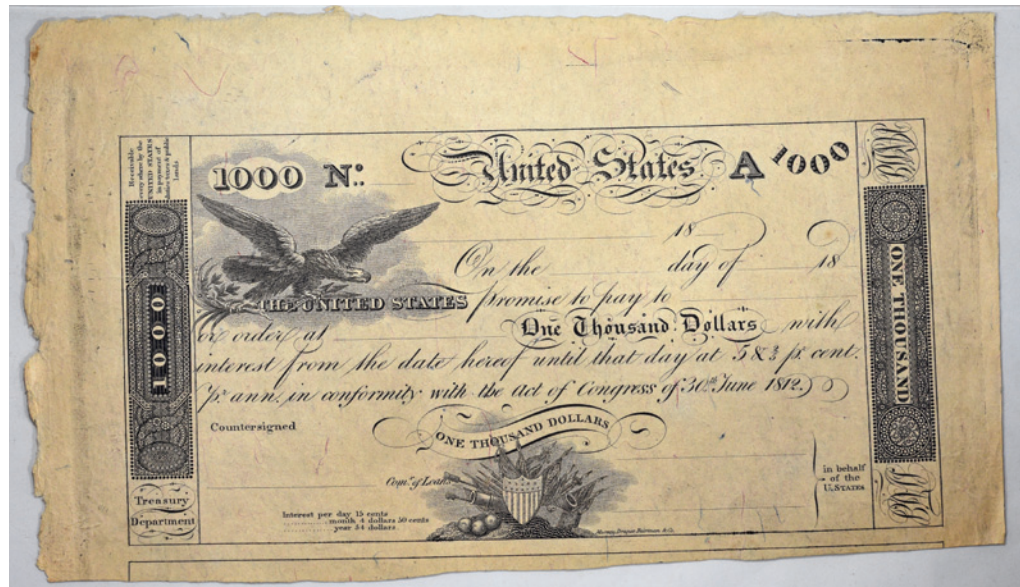 Receivable
every where by the
UNITED STATES
in payment of
duties taxes & public
Lands
1000 No: United States A 1000
18
On the day of 18
THE UNITED STATES promise to pay to
or order, at One Thousand Dollars with
interest from the date hereof until that day at 5 & 2/5 pr. cent.
pr. ann. in conformity with the Act of Congress of 30th June 1812.
Countersigned
ONE THOUSAND DOLLARS
Comr. of Loans
in behalf
of the
U. STATES
Interest per day 15 cents
month 4 dollars 50 cents
year 54 dollars
Murray, Draper, Fairman & Co.
1000
ONE THOUSAND
Treasury
Department